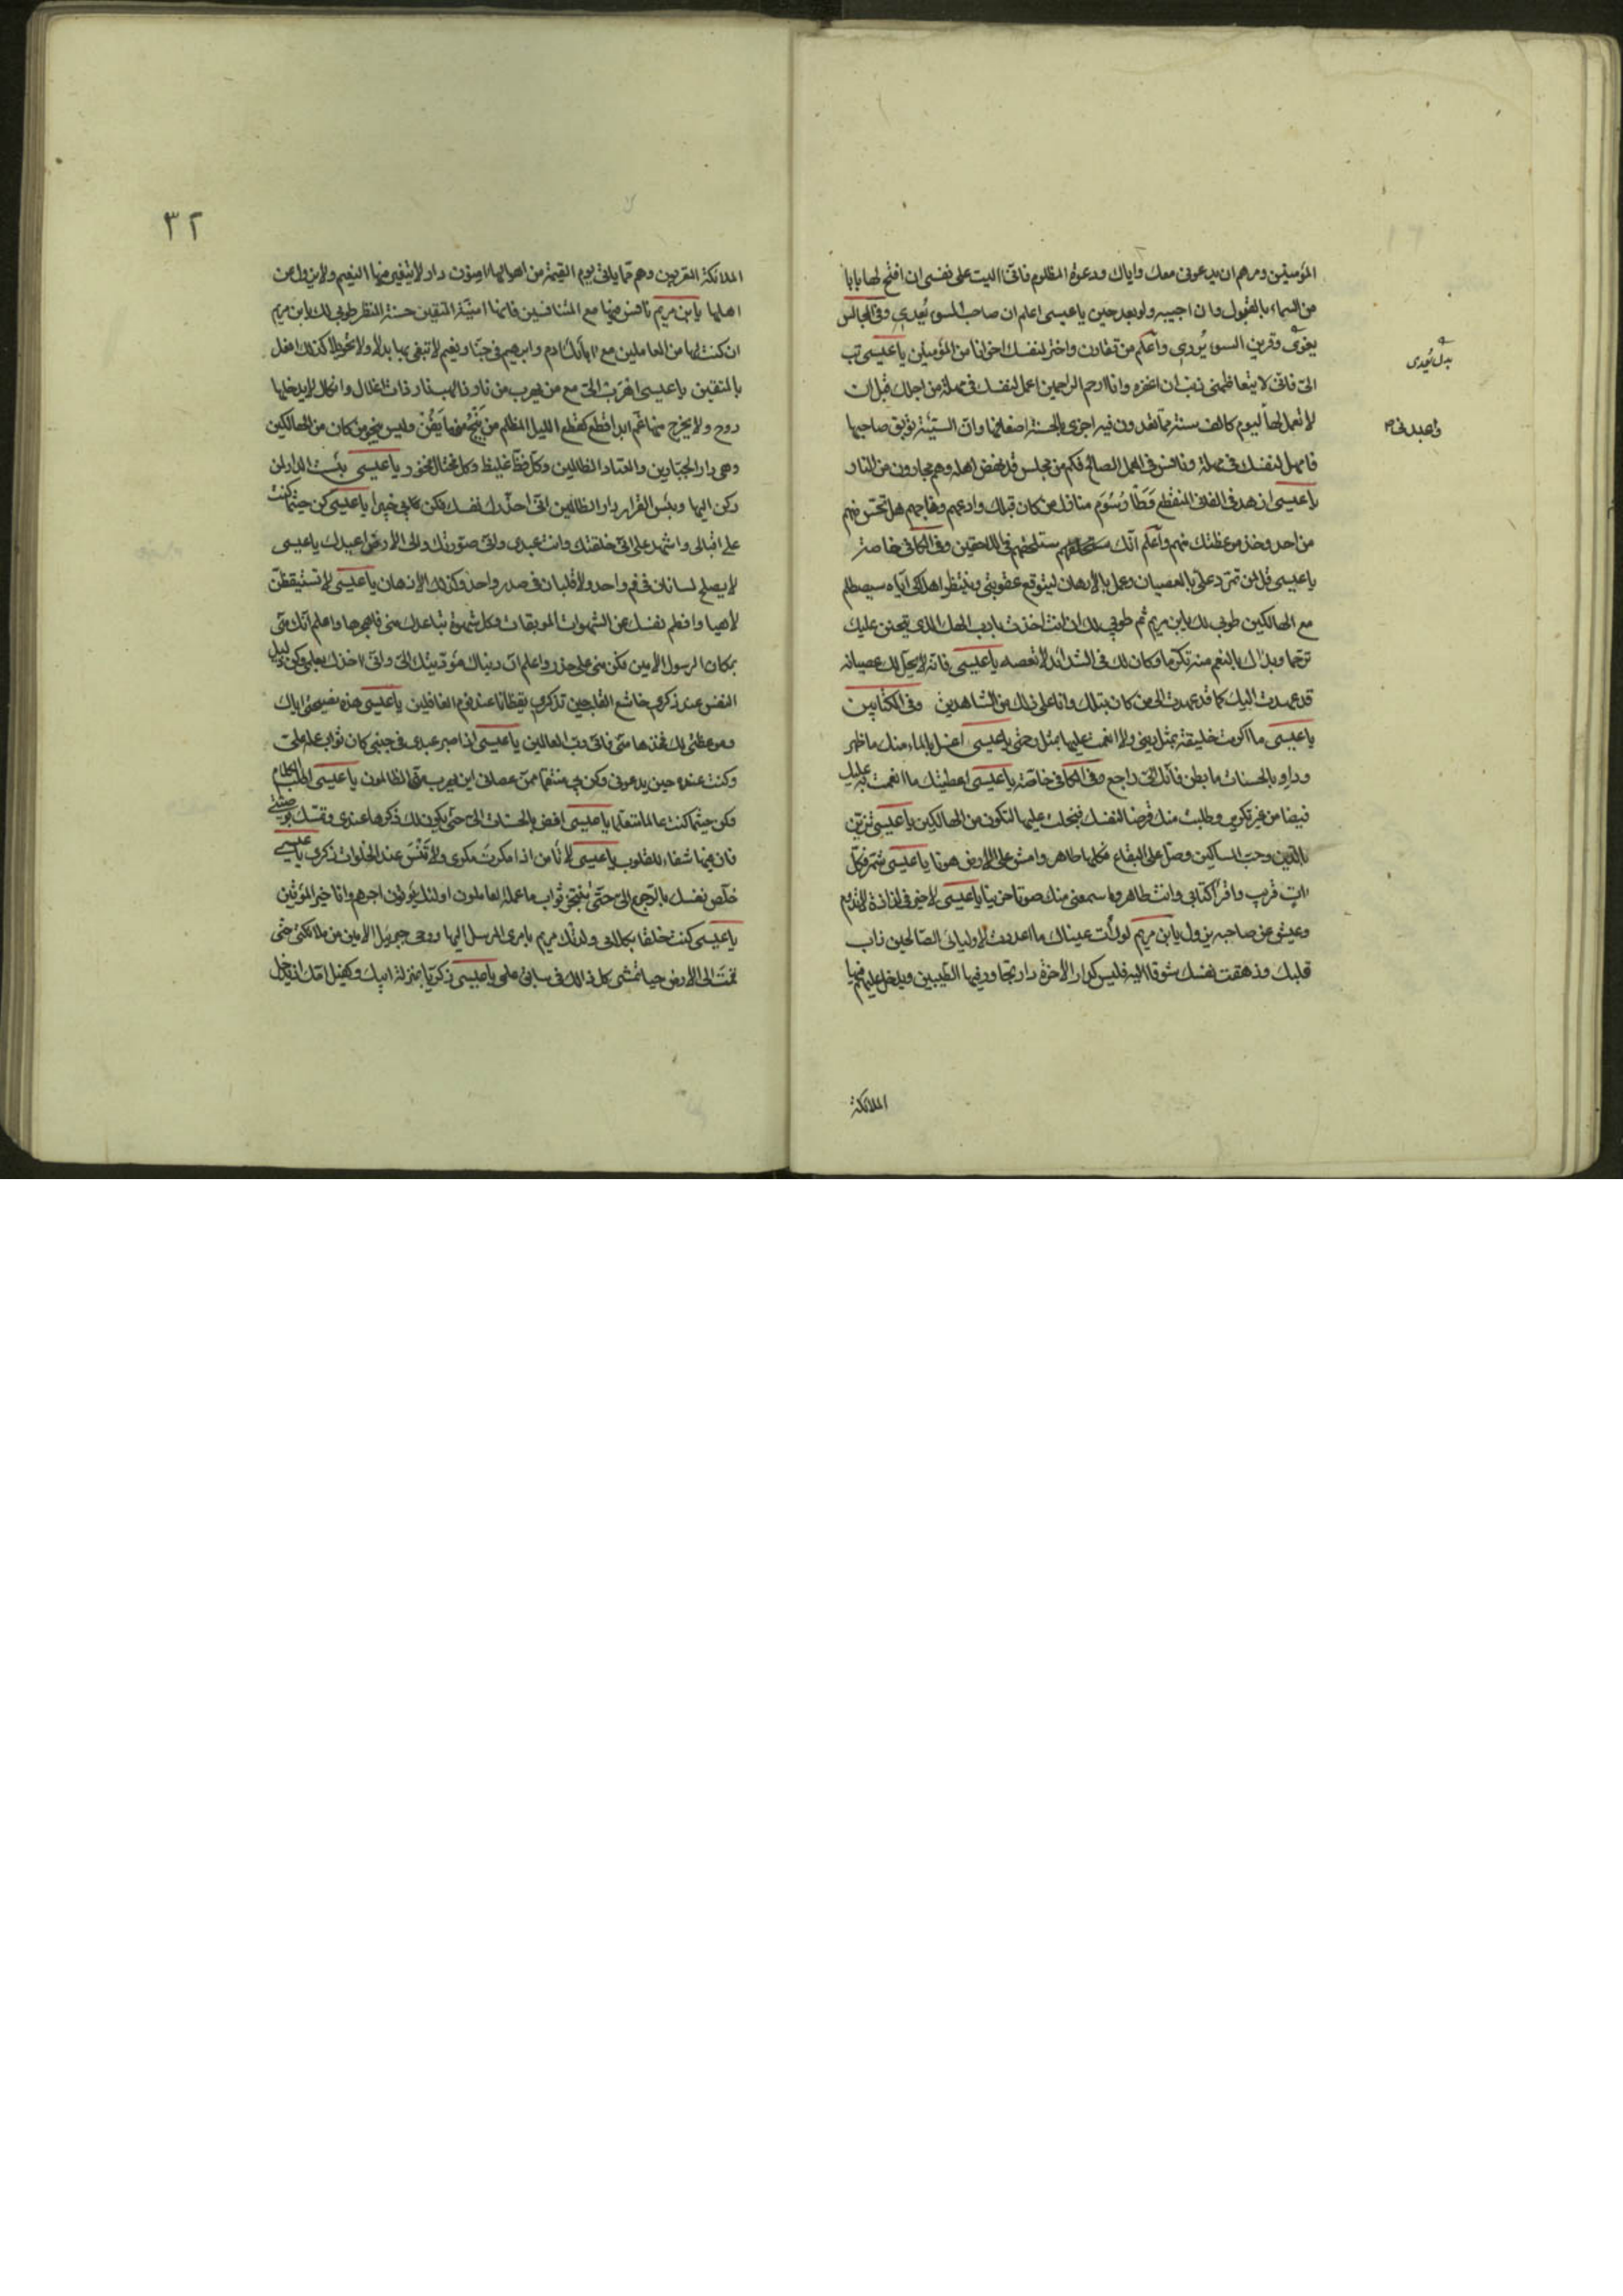 المؤمنين ومرهم ان يدعونى معك واياك ودعوة المظلوم فانى آليت على نفسى ان افتح لها بابا
من السماء بالقبول وان اجيبه ولو بعد حين يا عيسى اعلم ان صاحب السوء يُعدى وفى المجالس
يغوى وقرين السوء يُردى واعلم من تقارن واختر لنفسك اخوانا من المؤمنين يا عيسى تب
الىّ فانى لا يتعاظمنى ذنب ان اغفره وانا ارحم الراحمين اعمل لنفسك فى مهلة من اجلك قبل ان
لا تعمل لها ليوم كالف سنة مما تعدون فيه اجزى بالحسنة اضعافها وانّ السيّئة توبق صاحبها
فامهل لنفسك فى مهلة ونافس فى العمل الصالح فكم من مجلس قد نهض اهله وهم مجارون من النار
يا عيسى ازهد فى الفانى المنقطع وَطَأْ رُسُوم منازل من كان قبلك وادعهم وناجهم هل تحسّ منهم
من احد وخذ موعظتك منهم واعلم انّك ستلحقهم فى اللاحقين وفى الكافى خاصة
يا عيسى قل لمن تمرّد علىّ بالعصيان وعمل بالادهان ليتوقع عقوبتى وينتظر اهلاكى اياه سيصطلم
مع الهالكين طوبى لك يابن مريم ثم طوبى لك ان انت اخذت بادب الهك الذى يتحنن عليك
ترحما وبداك بالنعم منه تكرّما وكان لك فى الشدائد لا تعصه يا عيسى فانه لا يحلّ لك عصيانه
قد عهدت اليك كما قد عهدت الى من كان قبلك وانا على ذلك من الشاهدين وفى الكتابين
يا عيسى ما اكرمت خليقة بمثل دينى ولا انعمت عليها بمثل رحمتى يا عيسى اغسل بالماء منك ما ظهر
وداو بالحسنات ما بطن فانّك الىّ راجع وفى الكافى خاصّة يا عيسى اعطيتك ما انعمت به عليك
فيضا من غير تكدير وطلبت منك قرضا لنفسك فبخلت عليها لتكون من الهالكين يا عيسى تزيّن
بالدّين وحبّ المساكين وصلّ على البقاع فكلها طاهر وامش على الارض هونا يا عيسى شمّر فكلّ
آتٍ قريب واقرأ كتابى وانت طاهر واسمعنى منك صوتا حزينا يا عيسى لا خير فى لذاذة لا تدوم
وعيش عن صاحبه يزول يابن مريم لو رأت عيناك ما اعددت لاوليائى الصّالحين ذاب
قلبك وزهقت نفسك شوقا اليه فليس كدار الآخرة دار تجاور فيها الطّيبين ويدخل عليهم فيها
الملائكة
بدل يُعدى
واعبدنى
٣٢
الملائكة المقربين وهم مما ياتى يوم القيمة من اهوالها آمنون دار لا يتغير فيها النعيم ولا يزول عن
اهلها يابن مريم نافس فيها مع المتنافسين فانها امنيّة المتمنّين حسنة المنظر طوبى لك يابن مريم
ان كنت لها من العاملين مع آبائك آدم وابرهيم فى جنّات ونعيم لا تبغى بها بدلا ولا تحويلا كذلك افعل
بالمتقين يا عيسى اهرب الىّ مع من يهرب من نار ذات لهب ونار ذات اغلال وانكال لا يدخلها
روح ولا يخرج منها غمّ ابدا قطع كقطع الليل المظلم من يَنجُ منها يَفُزْ وليس ينجو من كان من الهالكين
وهى دار الجبّارين والعتاة الظالمين وكلّ فظّ غليظ وكل مختال فخور يا عيسى بئست الدار لمن
ركن اليها وبئس القرار دار الظالمين انّى احذّرك نفسك فكن بى خبيرا يا عيسى كن حيثما كنت
مراقبا لى واشهد على انّى خلقتك وانت عبدى وانى صوّرتك والى الارض اهبطتك يا عيسى
لا يصلح لسانان فى فم واحد ولا قلبان فى صدر واحد وكذلك الاذهان يا عيسى لا تستيقظنّ
لاهيا وافطم نفسك عن الشهوات الموبقات وكل شهوة تباعدك منى فاهجرها واعلم انّك منّى
بمكان الرسول الامين فكن منى على حذر واعلم انّ دنياك مؤدّيتك الىّ وانّى آخذك بعلمى وكن ذليل
النفس عند ذكرى خاشع القلب حين تذكرنى يقظانا عند نوم الغافلين يا عيسى هذه نصيحتى اياك
وموعظتى لك فخذها منّى فانى ربّ العالمين يا عيسى اذا صبر عبدى فى جنبى كان ثواب عمله علىّ
وكنت عنده حين يدعونى وكفى بى منتقما ممّن عصانى اين يهرب منّى الظالمون يا عيسى اطب الكلام
وكن حيثما كنت عالما متعلما يا عيسى افض بالحسنات الىّ حتى يكون لك ذكرها عندى وتمسّك بوصيّتى
فان فيها شفاء للقلوب يا عيسى لا تأمن اذا مكرت مكرى ولا تَنْسَ عند الخلوات ذكرى يا عيسى
خلّص نفسك بالرّجوع الىّ حتّى تتنجّز ثواب ما عمله العاملون اولئك يؤتون اجرهم وانا خير المؤتين
يا عيسى كنت خلقا بكلامى ولدتك مريم بامرى المرسل اليها روحى جبريل الامين من ملائكتى حتى
قمت على الارض حيا تمشى كل ذلك فى سابق علمى يا عيسى زكريّا بمنزلة ابيك وكفيل امّك اذ يدخل